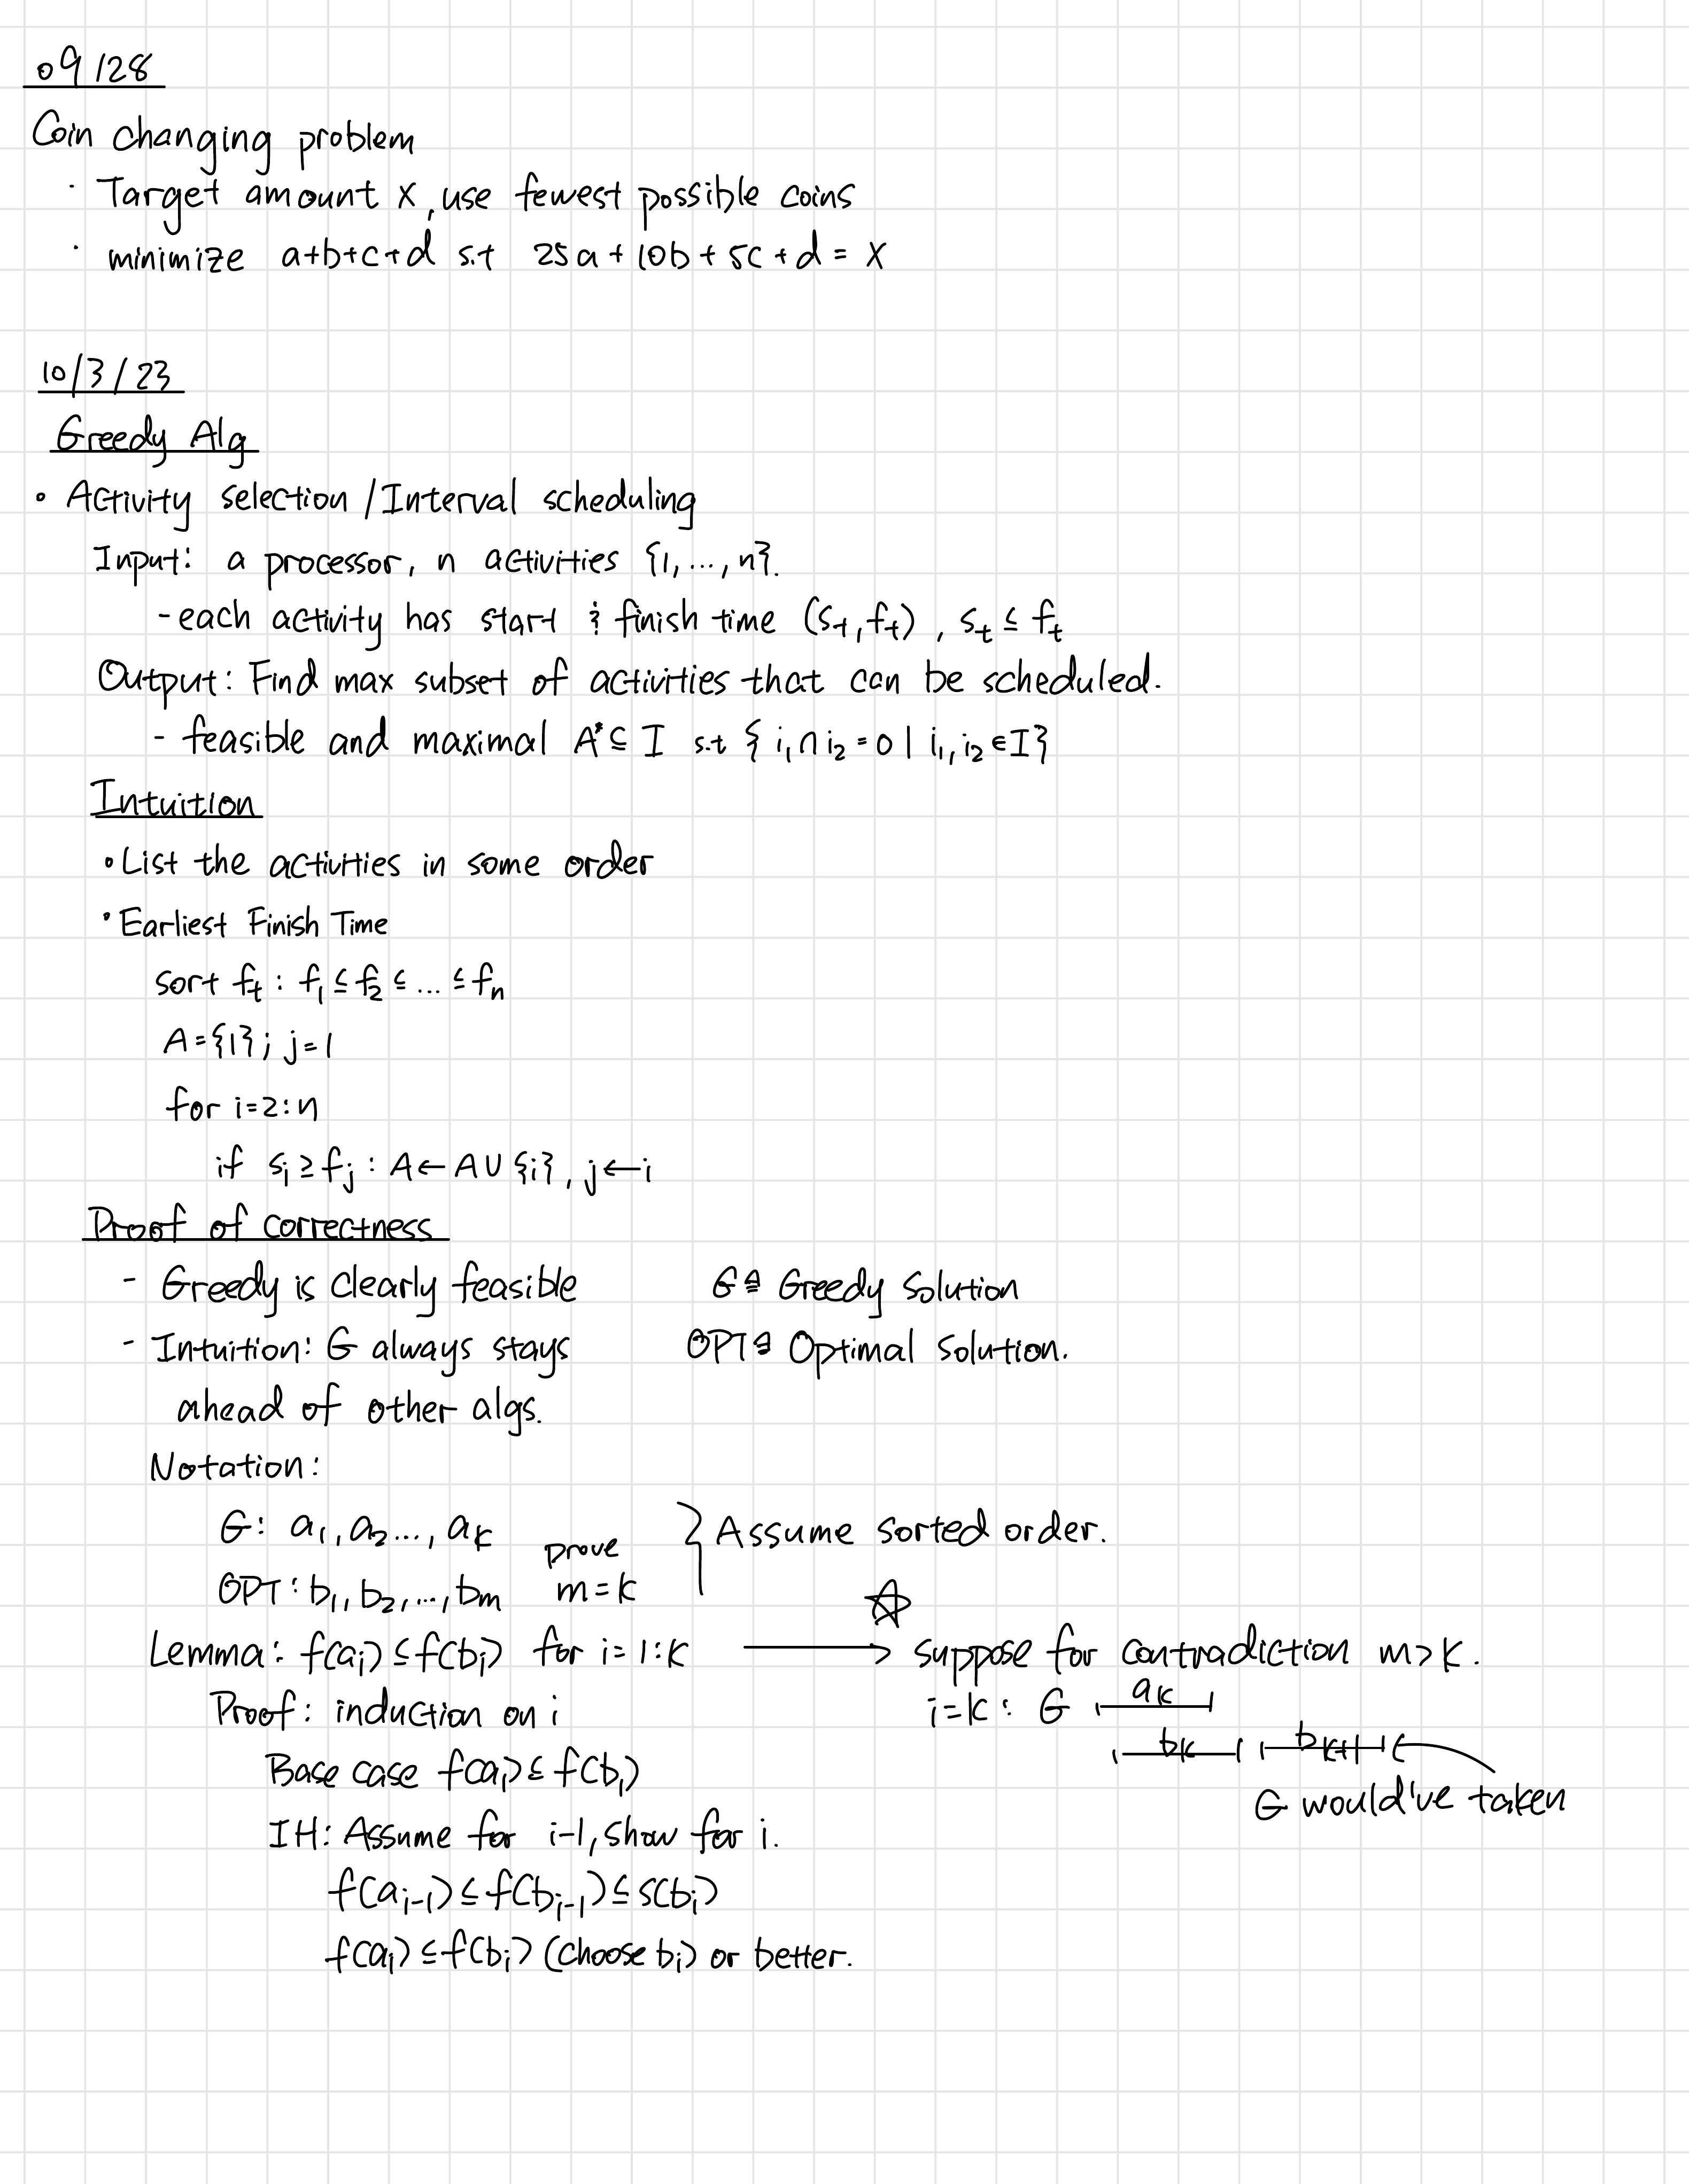 09/28
Coin changing problem
· Target amount x, use fewest possible coins
· minimize a+b+c+d s.t 25a+10b+5c+d = x
10/3/23
Greedy Alg
• Activity selection/Interval scheduling
Input: a processor, n activities {1, ..., n}.
- each activity has start & finish time (s_t, f_t), s_t ≤ f_t
Output: Find max subset of activities that can be scheduled.
- feasible and maximal A* ⊆ I s.t { i₁ ∩ i₂ = 0 | i₁, i₂ ∈ I}
Intuition
• List the activities in some order
• Earliest Finish Time
sort f_t : f₁ ≤ f₂ ≤ ... ≤ f_n
A={1}; j=1
for i=2:n
if s_i ≥ f_j : A ← A ∪ {i}, j ← i
Proof of correctness
- Greedy is clearly feasible G ≜ Greedy Solution
- Intuition: G always stays OPT ≜ Optimal Solution.
ahead of other algs.
Notation:
G: a₁, a₂ ..., a_k } Assume sorted order.
OPT: b₁, b₂, ..., b_m prove m=k
Lemma: f(a_i) ≤ f(b_i) for i=1:k ⟶ ☆ suppose for contradiction m>k.
Proof: induction on i i=k: G a_k
Base case f(a₁) ≤ f(b₁) b_k b_{k+1}
G would've taken
IH: Assume for i-1, show for i.
f(a_{i-1}) ≤ f(b_{i-1}) ≤ s(b_i)
f(a_i) ≤ f(b_i) (choose b_i) or better.